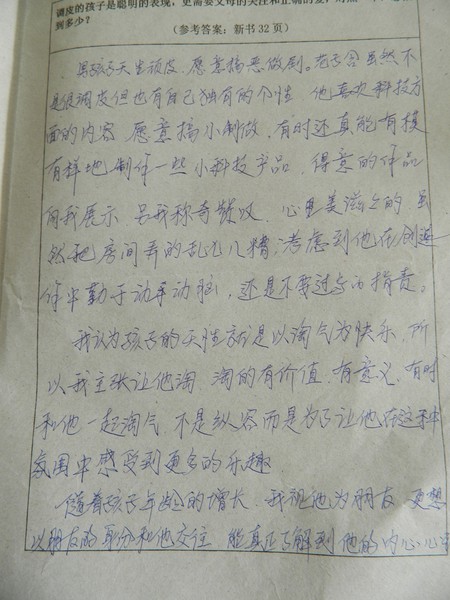 调皮的孩子是聪明的表现,更需要父母的关注和正确的爱,
到多少?
(参考答案:新书32页)
男孩子天生顽皮,愿意搞恶做剧。 虽然不
是很调皮但也有自己独有的个性 他喜欢科技方
面的内容 愿意搞小制做,有时还真能有模
有样地制作一些小科技产品,得意的作品
向我展示,另我称奇赞叹,心里美滋滋的 虽
然把房间弄的乱七八糟,考虑到他在创造
作中勤于动手动脑,还是不要过多的指责。
我认为孩子的天性就是以淘气为快乐,所
以我主张让他淘,淘的有价值,有意义,有时
和他一起淘气,不是纵容而是为了让他在这种
氛围中感受到更多的乐趣
随着孩子年龄的增长,我视他为朋友,更想
以朋友的身份和他交往 能真正了解到他的内心